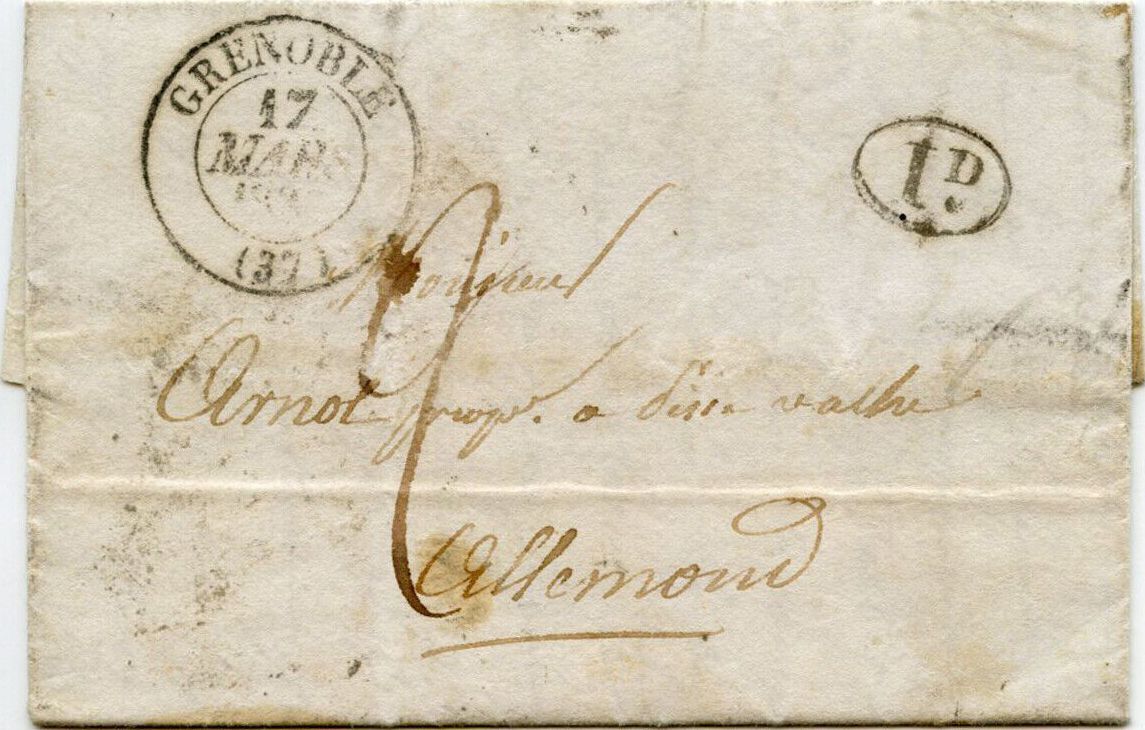 GRENOBLE
17
MARS
(37)
1 D
Monsieur
Arnol propr. a
Allemond